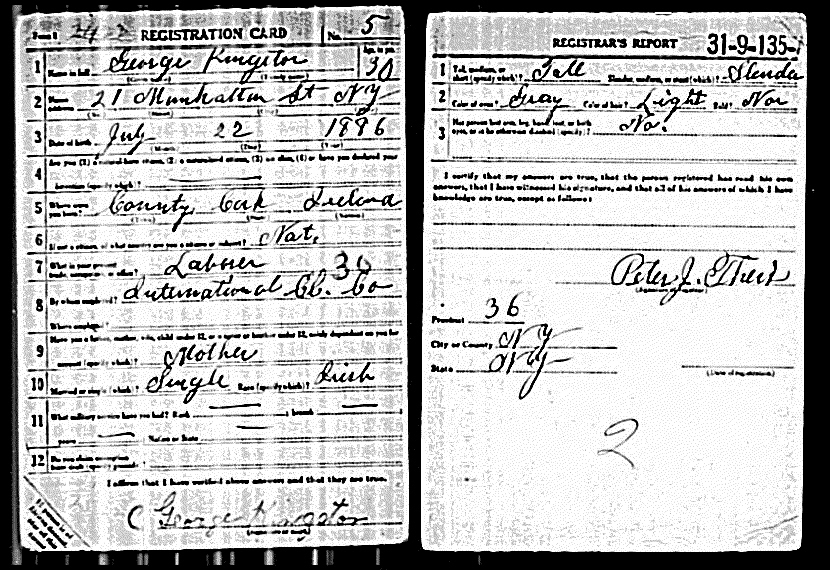 Form 1 REGISTRATION CARD No. 5
1 Name in full George Kingston Age in yrs. 30
2 Home address 21 Manhattan St NY
3 Date of birth July 22 1886
(Month) (Day) (Year)
4 Are you (1) a natural born citizen, (2) a naturalized citizen, (3) an alien, (4) or have you declared your
intention (specify which)?
5 Where were you born? County Cork Ireland
6 If not a citizen, of what country are you a citizen or subject? Nat.
7 What is your present trade, occupation, or office? Laborer 30
8 By whom employed? International Co
Where employed?
9 Have you a father, mother, wife, child under 12, or a sister or brother under 12, solely dependent on you for
support (specify which)? Mother
10 Married or single (which)? Single Race (specify which)? Irish
11 What military service have you had? Rank — ; branch —
years — Nation or State —
12 Do you claim exemption from draft (specify grounds)?
I affirm that I have verified above answers and that they are true.
George Kingston
REGISTRAR'S REPORT 31-9-135-
1 Tall, medium, or short (specify which)? Tall Slender, medium, or stout (which)? Slender
2 Color of eyes? Gray Color of hair? Light Bald? Nor
3 Has person lost arm, leg, hand, foot, or both eyes, or is he otherwise disabled (specify)? No.
I certify that my answers are true, that the person registered has read his own
answers, that I have witnessed his signature, and that all of his answers of which I have
knowledge are true, except as follows:
Peter J.
(Signature of registrar)
Precinct 36
City or County NY
State NY
(Date of registration)
2